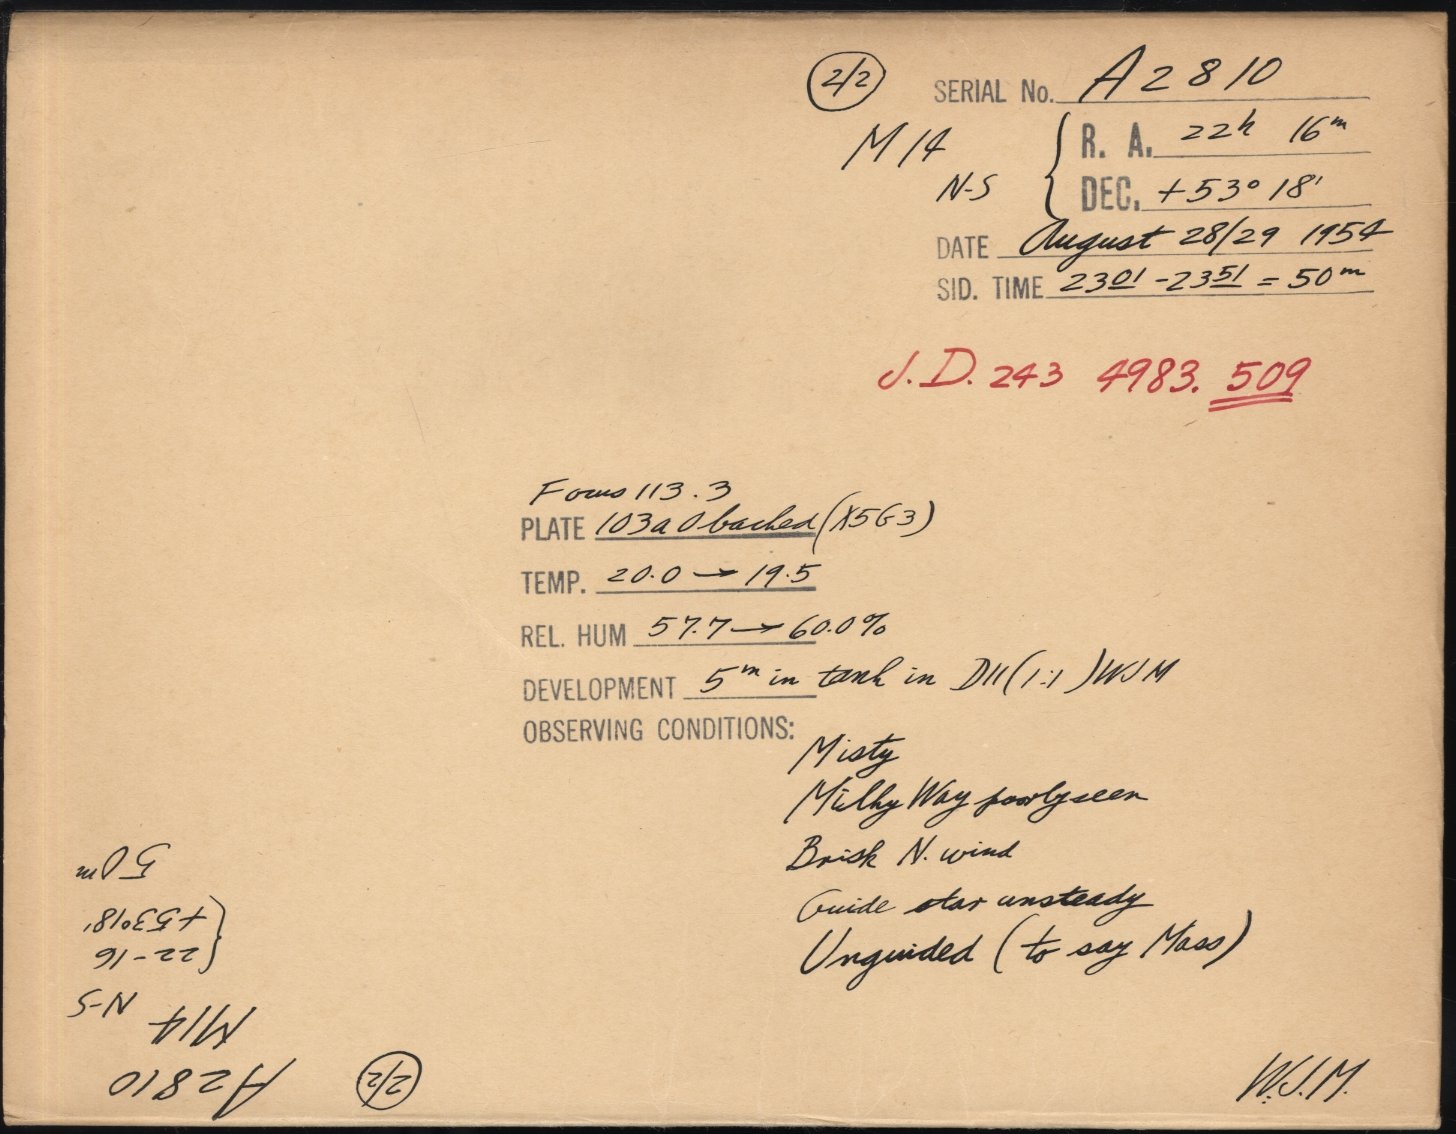 2/2
SERIAL No. A2810
M14
R. A. 22h 16m
N-S
DEC. +53° 18'
DATE August 28/29 1954
SID. TIME 2301 - 2351 = 50m
J.D. 243 4983. 509
Focus 113.3
PLATE 103a O backed (X5G3)
TEMP. 20.0 → 19.5
REL. HUM 57.7 → 60.0%
DEVELOPMENT 5m in tank in D11 (1:1) WJM
OBSERVING CONDITIONS:
Misty
Milky Way poorly seen
Brisk N. wind
Guide star unsteady
Unguided (to say Mass)
W.J.M.
A2810
2/2
M14
N-S
22-16
+53°18'
50m